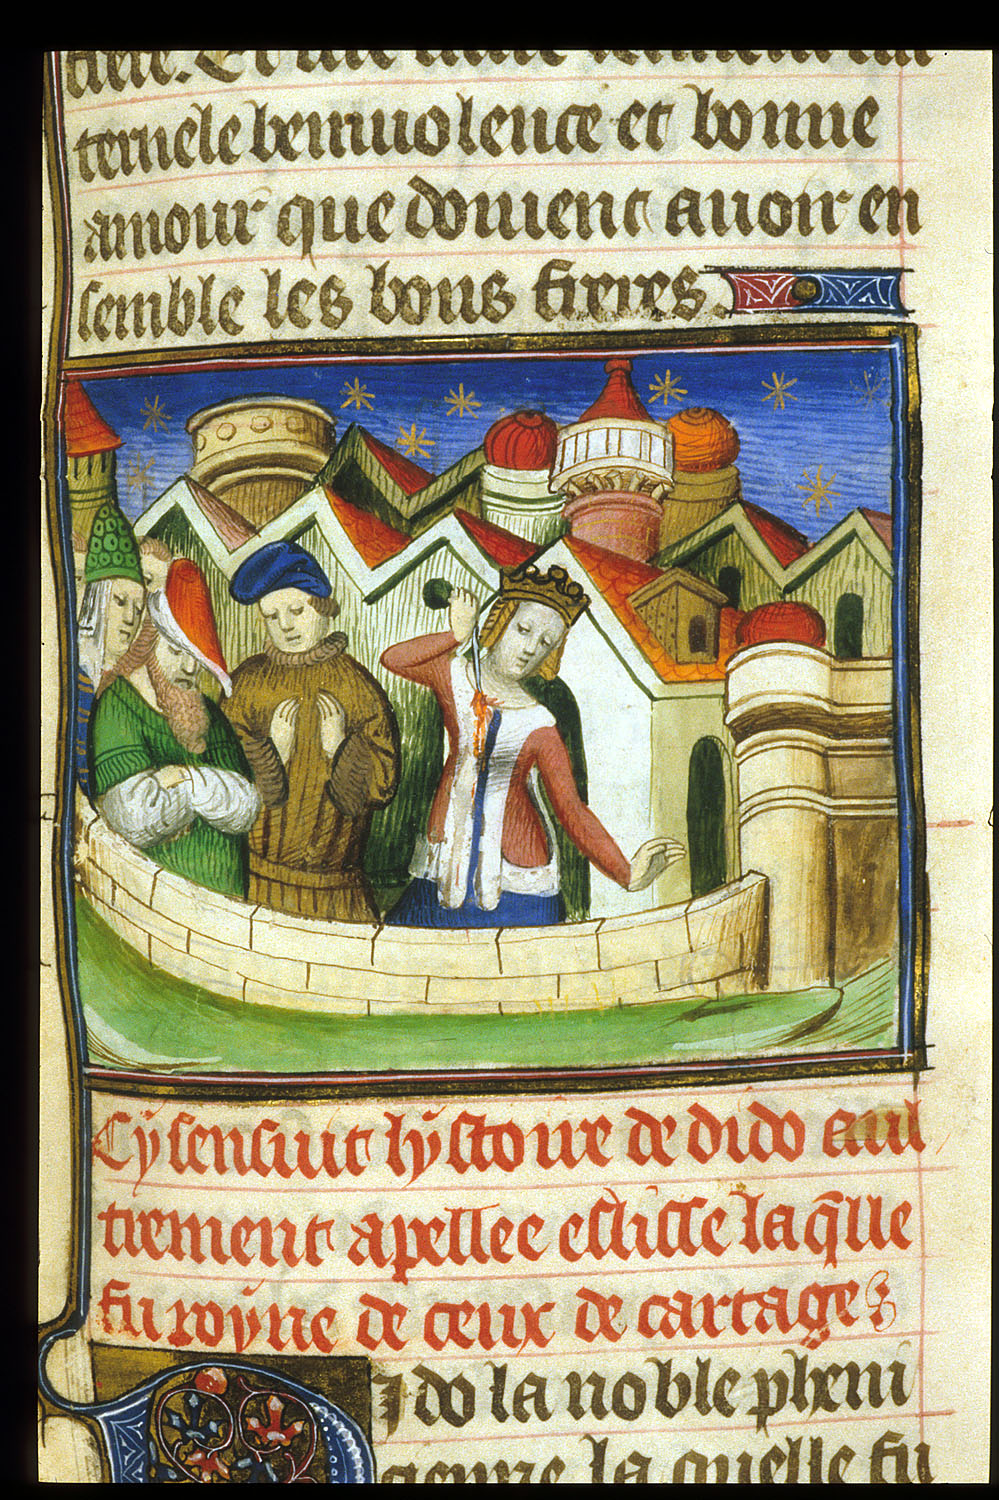 ternele benivolence et bonne
amour que doivent avoir en
semble les bons freres.
Cy sensuit hystoire de dido aul
trement apellee elisse la qlle
fu royne de ceux de cartage
Dido la noble pheni
cienne la quelle fu